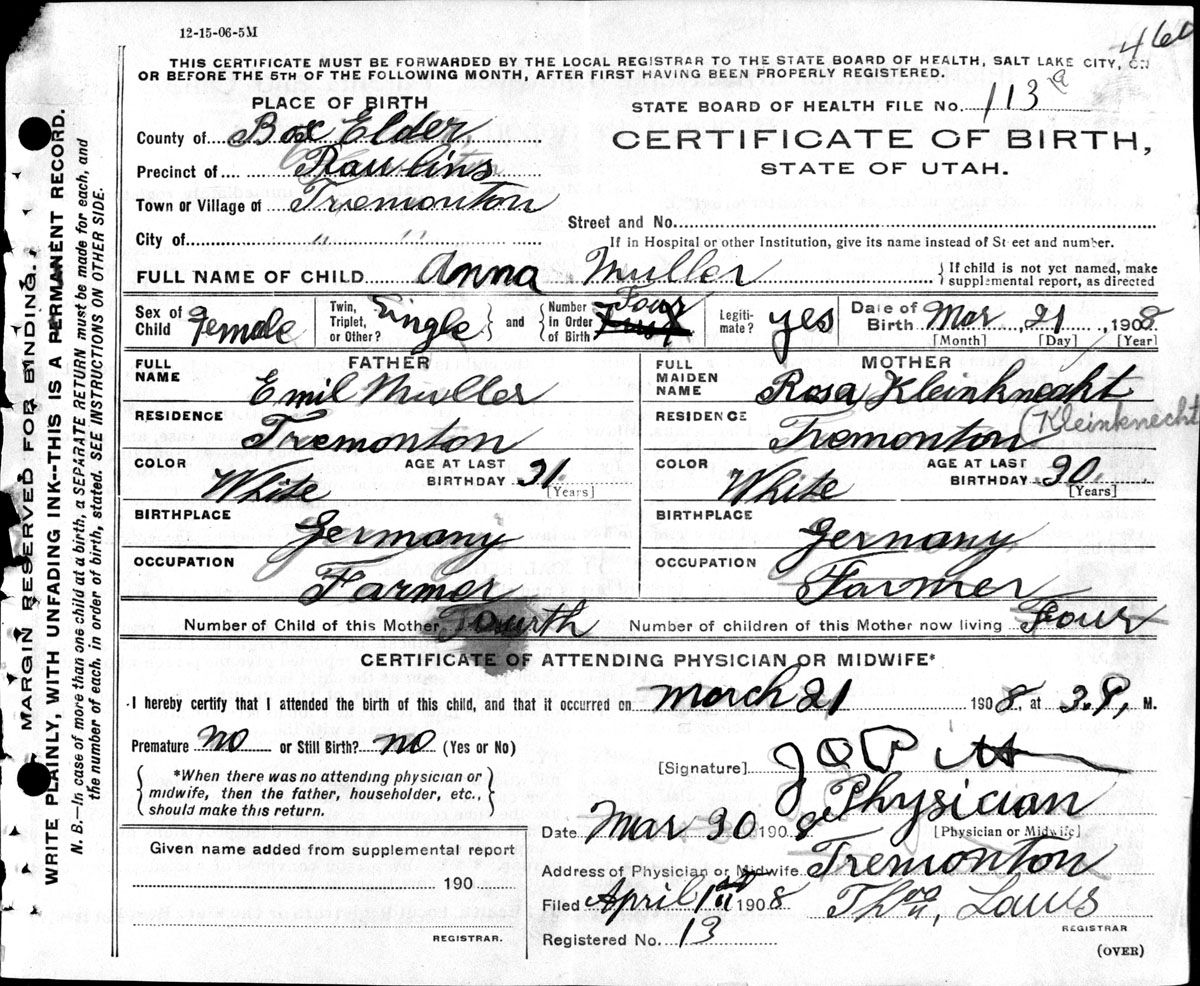 12-15-06-5M
460
THIS CERTIFICATE MUST BE FORWARDED BY THE LOCAL REGISTRAR TO THE STATE BOARD OF HEALTH, SALT LAKE CITY, ON
OR BEFORE THE 5TH OF THE FOLLOWING MONTH, AFTER FIRST HAVING BEEN PROPERLY REGISTERED.
PLACE OF BIRTH
County of Box Elder
Precinct of Rawlins
Town or Village of Tremonton
City of " "
STATE BOARD OF HEALTH FILE No. 113 a
CERTIFICATE OF BIRTH,
STATE OF UTAH.
Street and No.
If in Hospital or other Institution, give its name instead of Street and number.
FULL NAME OF CHILD Anna Muller } If child is not yet named, make supplemental report, as directed
Sex of Child Female Twin, Triplet, or Other? Single } and { Number in Order of Birth Four Legiti-mate? yes Date of Birth Mar 21, 1908 [Month] [Day] [Year]
FATHER
FULL NAME Emil Muller
RESIDENCE Tremonton
COLOR White AGE AT LAST BIRTHDAY 31 [Years]
BIRTHPLACE Germany
OCCUPATION Farmer
MOTHER
FULL MAIDEN NAME Rosa Kleinknecht
RESIDENCE Tremonton (Kleinknecht
COLOR White AGE AT LAST BIRTHDAY 30 [Years]
BIRTHPLACE Germany
OCCUPATION Farmer
Number of Child of this Mother Fourth Number of children of this Mother now living Four
CERTIFICATE OF ATTENDING PHYSICIAN OR MIDWIFE*
I hereby certify that I attended the birth of this child, and that it occurred on March 21 1908, at 3.P, M.
Premature no or Still Birth? no (Yes or No)
{ *When there was no attending physician or midwife, then the father, householder, etc., should make this return. }
Given name added from supplemental report
190
REGISTRAR.
[Signature]
Physician
[Physician or Midwife]
Date Mar 30 1908
Address of Physician or Midwife Tremonton
Filed April 1st 1908 Thos Laws
REGISTRAR
Registered No. 13
(OVER)
MARGIN RESERVED FOR BINDING.
WRITE PLAINLY, WITH UNFADING INK--THIS IS A PERMANENT RECORD.
N. B.--In case of more than one child at a birth, a SEPARATE RETURN must be made for each, and
the number of each, in order of birth, stated. SEE INSTRUCTIONS ON OTHER SIDE.